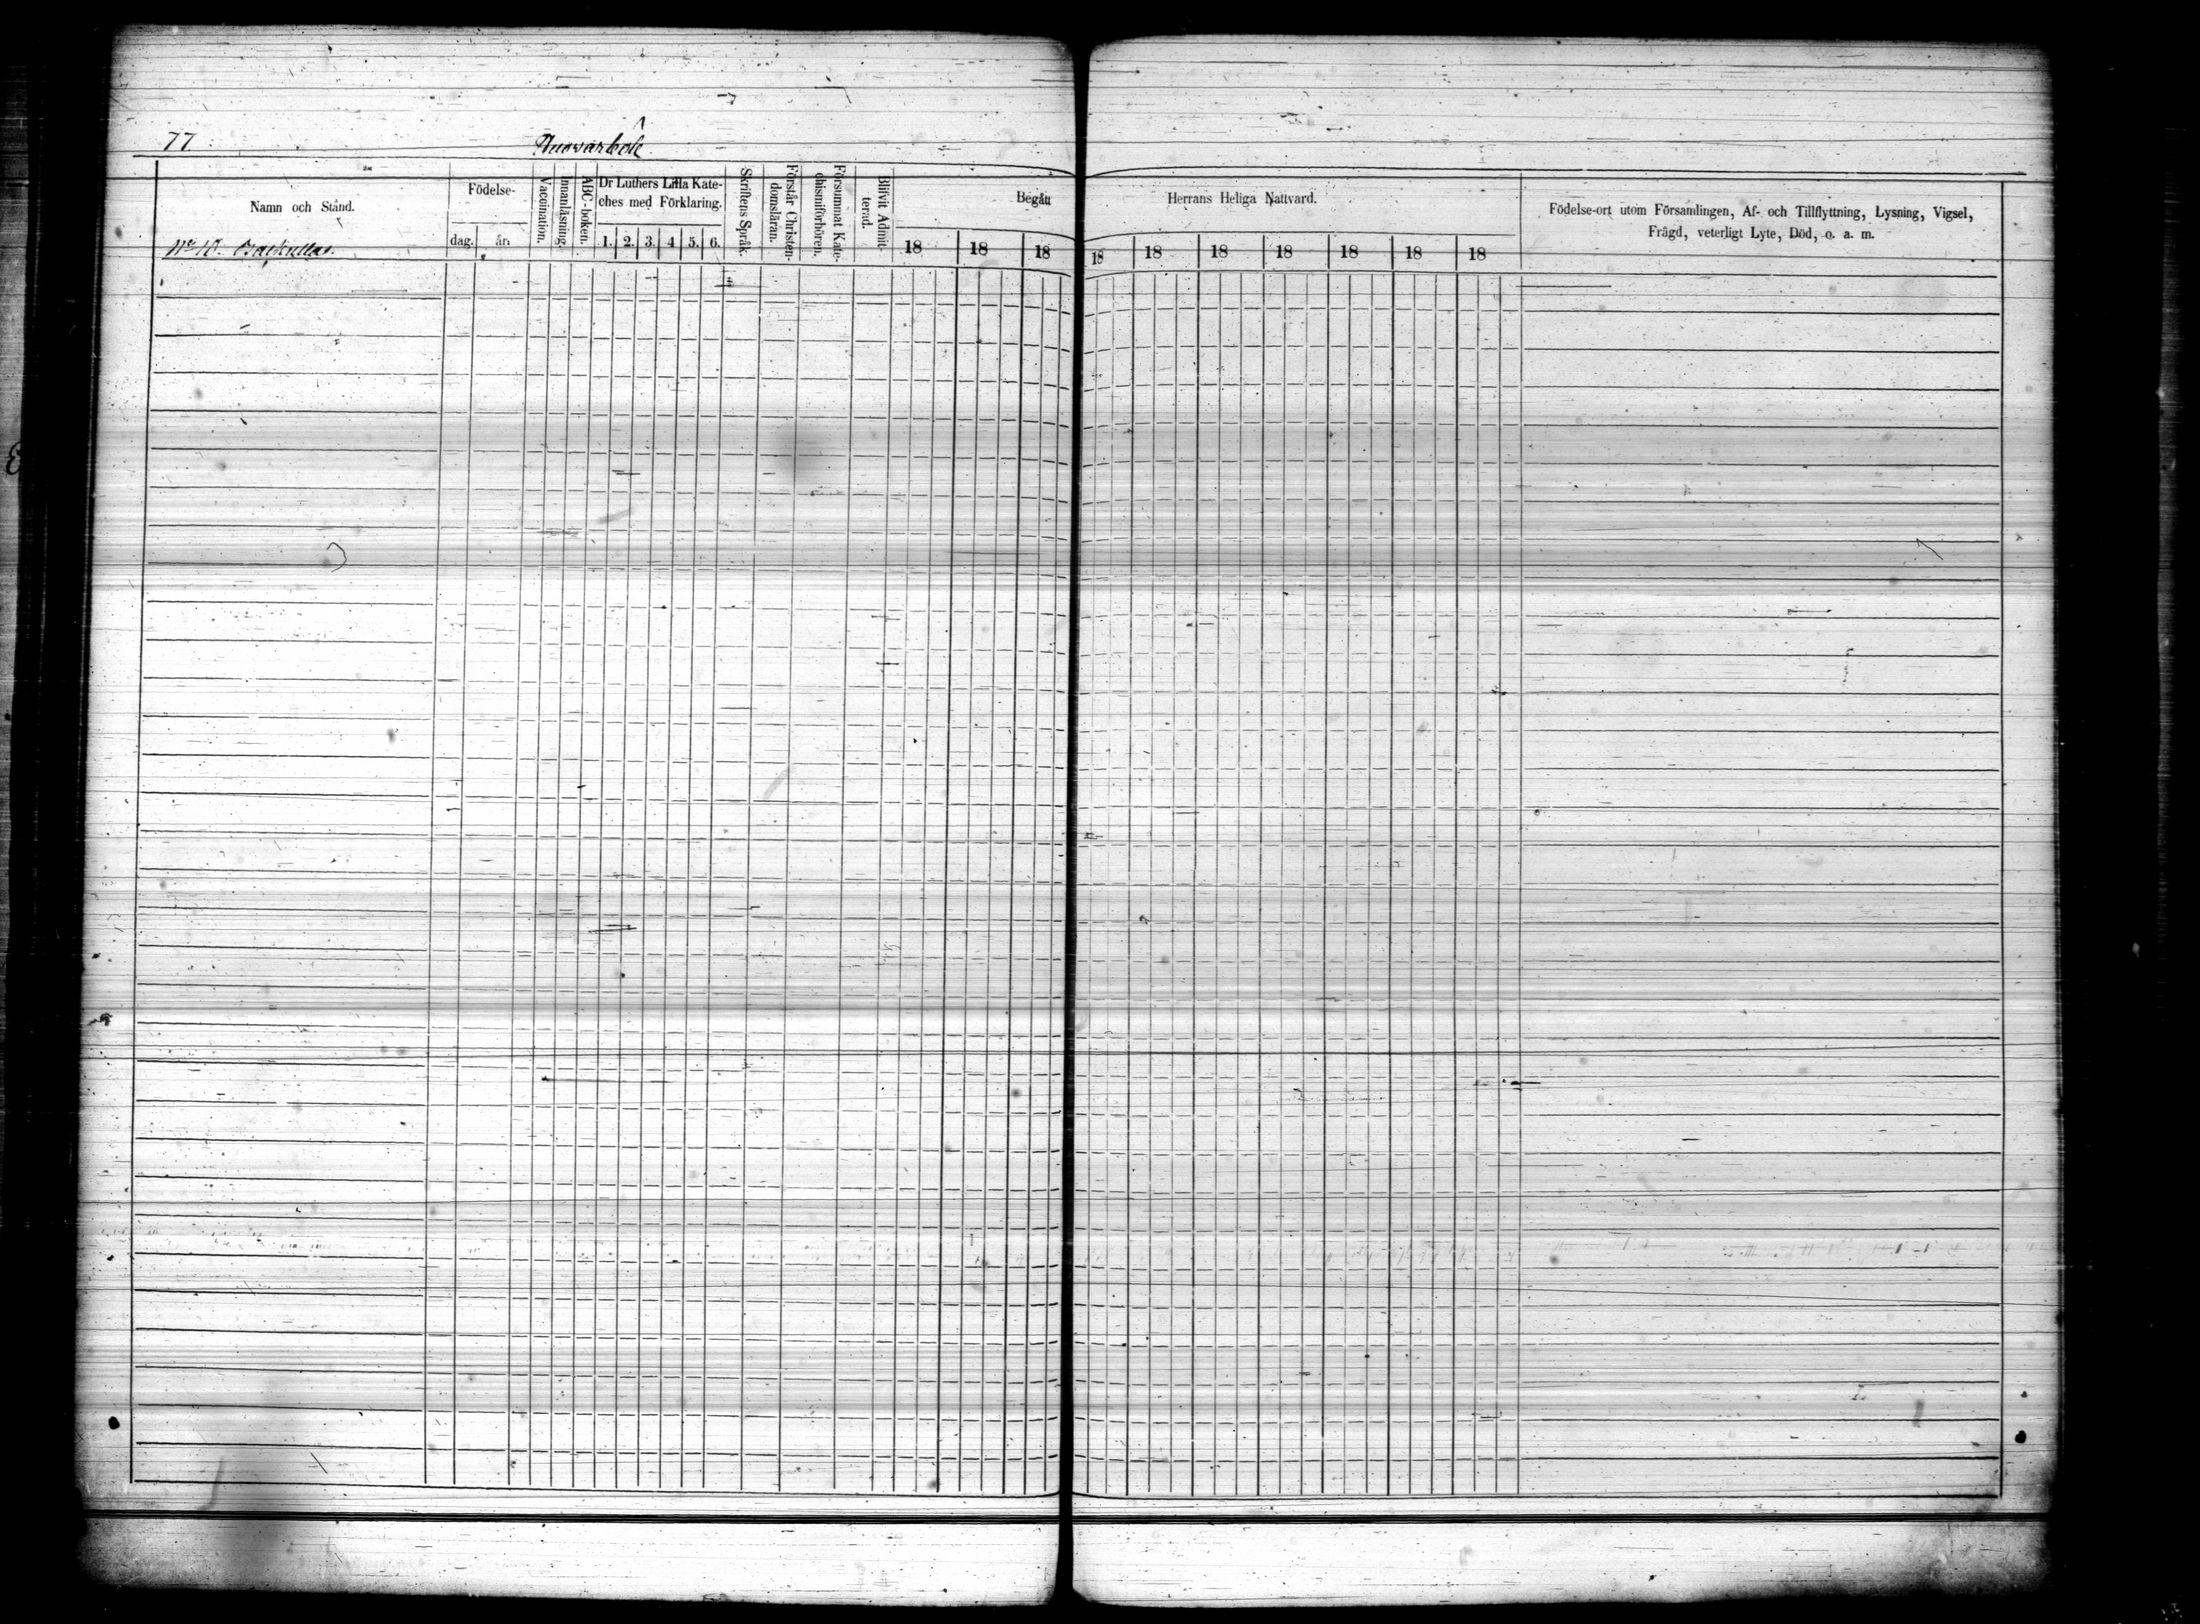 77
Namn och Stånd.
Födelse-
dag.
år.
Vaccination.
Innanläsning.
ABC-boken.
Dr Luthers Lilla Kate-
ches med Förklaring.
1. 2. 3. 4 5. 6.
Skriftens Språk.
Förstår Christen-
domsläran.
Försummat Kate-
chismiförhören.
Blifvit Admit-
terad.
Begått
18 18 18
Herrans Heliga Nattvard.
18 18 18 18 18 18 18
Födelse-ort utom Församlingen, Af- och Tillflyttning, Lysning, Vigsel,
Frägd, veterligt Lyte, Död, o. a. m.
No 10.